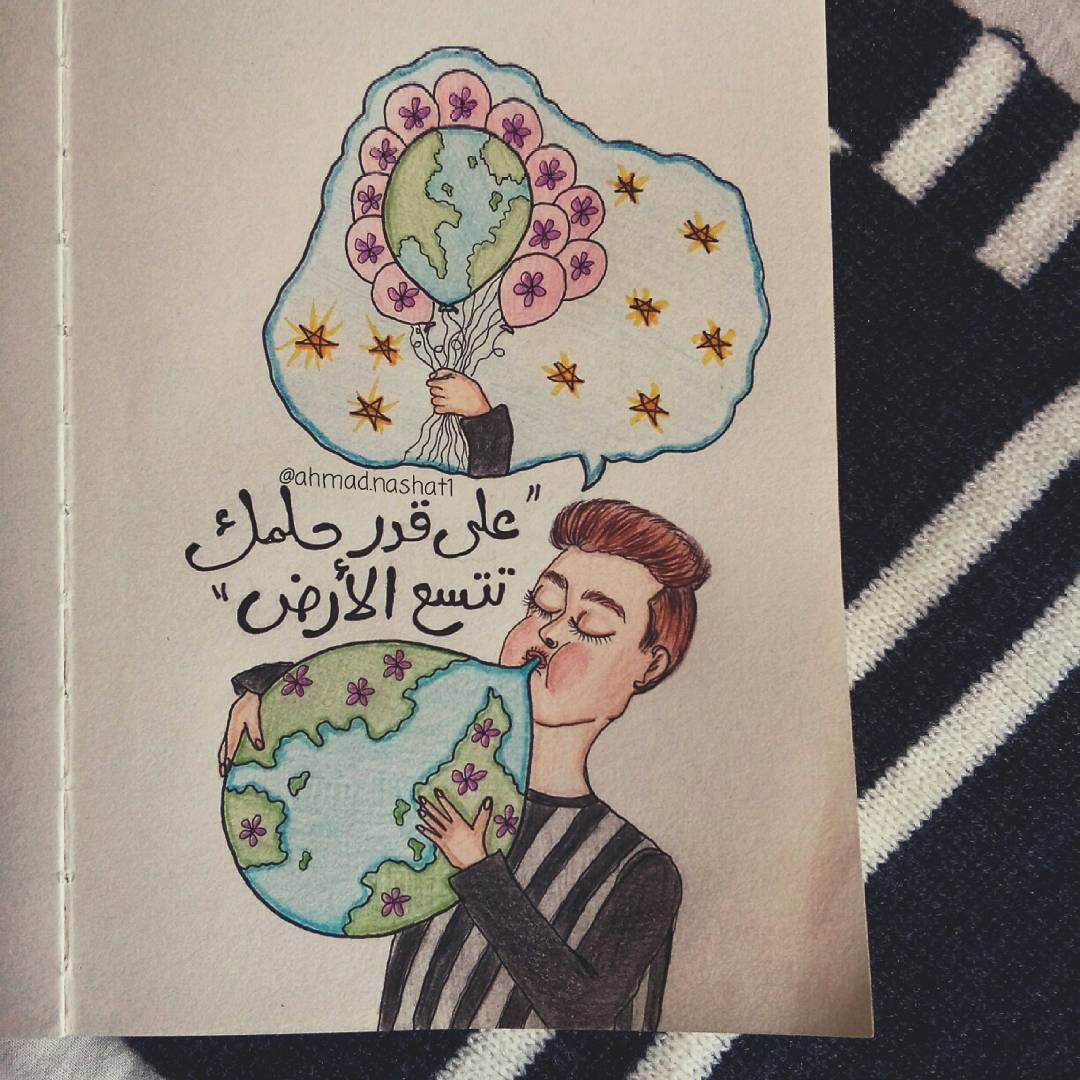 @ahmad.nashat1
"على قدر حلمك
تتسع الأرض"